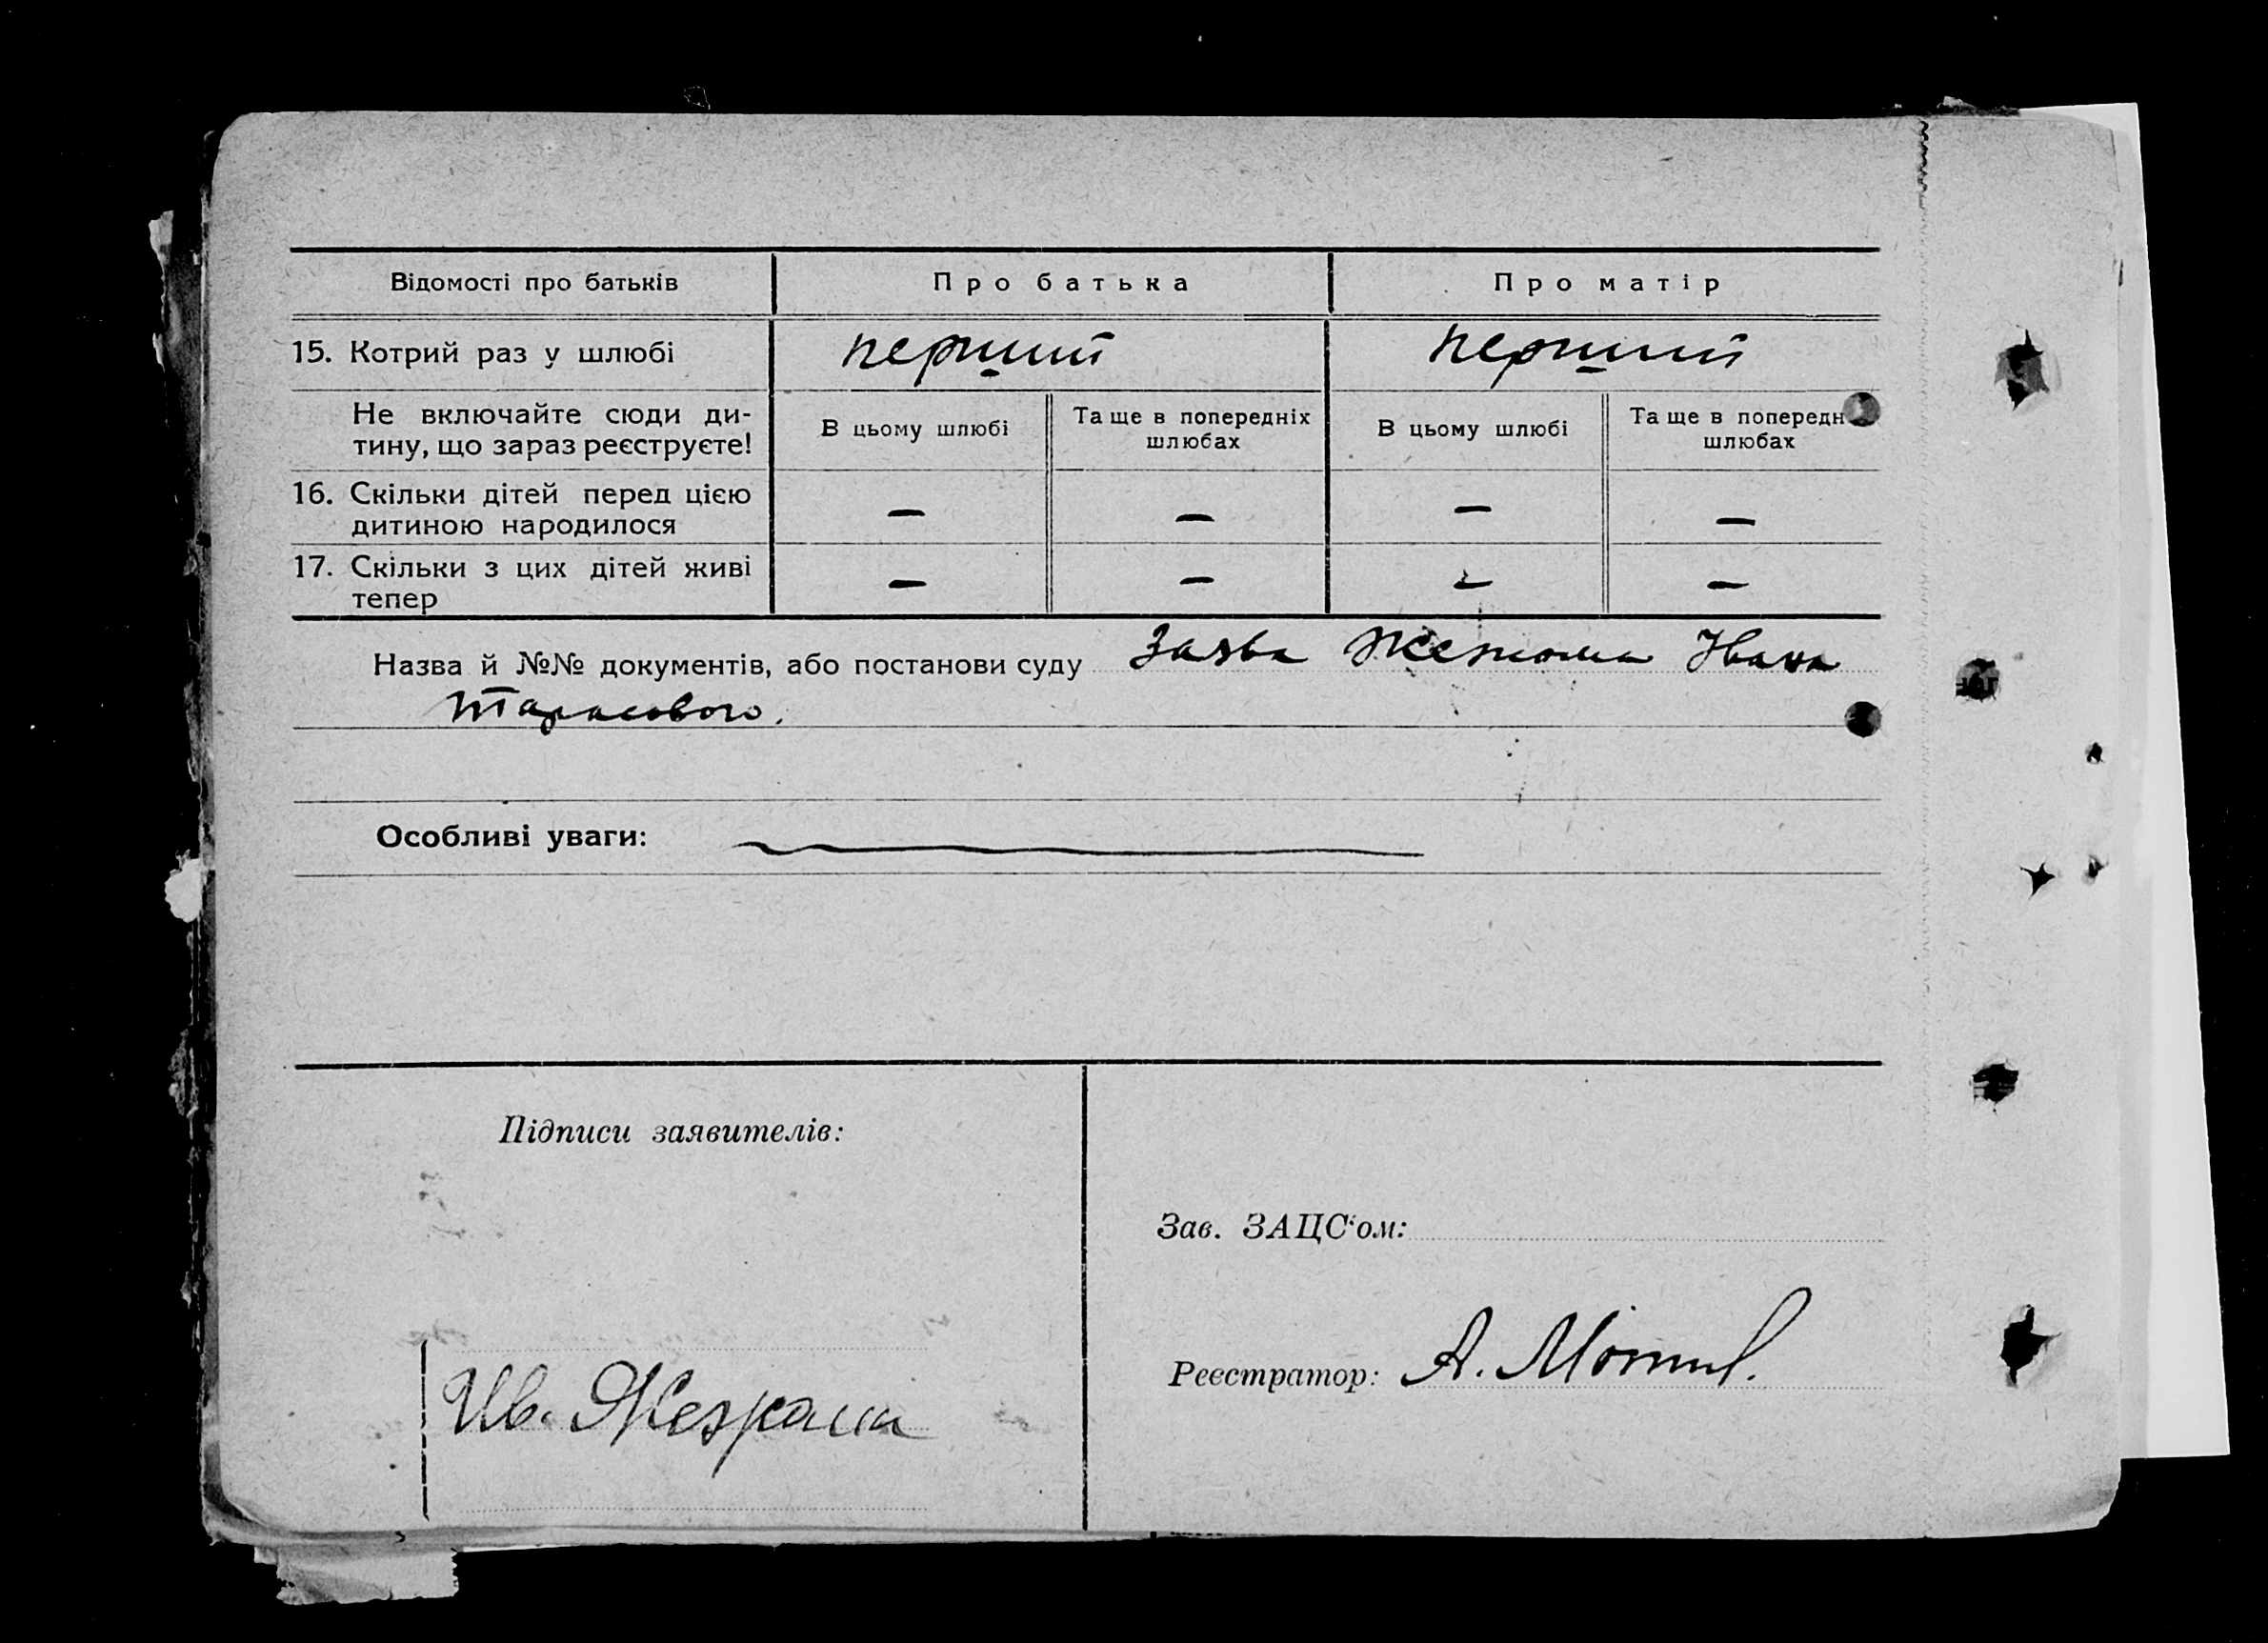 Відомості про батьків
Про батька
Про матір
15. Котрий раз у шлюбі
перший
перший
Не включайте сюди ди-
тину, що зараз реєструєте!
В цьому шлюбі
Та ще в попередніх
шлюбах
В цьому шлюбі
Та ще в попередн
шлюбах
16. Скільки дітей перед цією
дитиною народилося
— — — —
17. Скільки з цих дітей живі
тепер
— — — —
Назва й №№ документів, або постанови суду Заява Івана
Тарасового.
Особливі уваги:
Підписи заявителів:
Зав. ЗАЦС‘ом:
Реєстратор: А.
Ив.